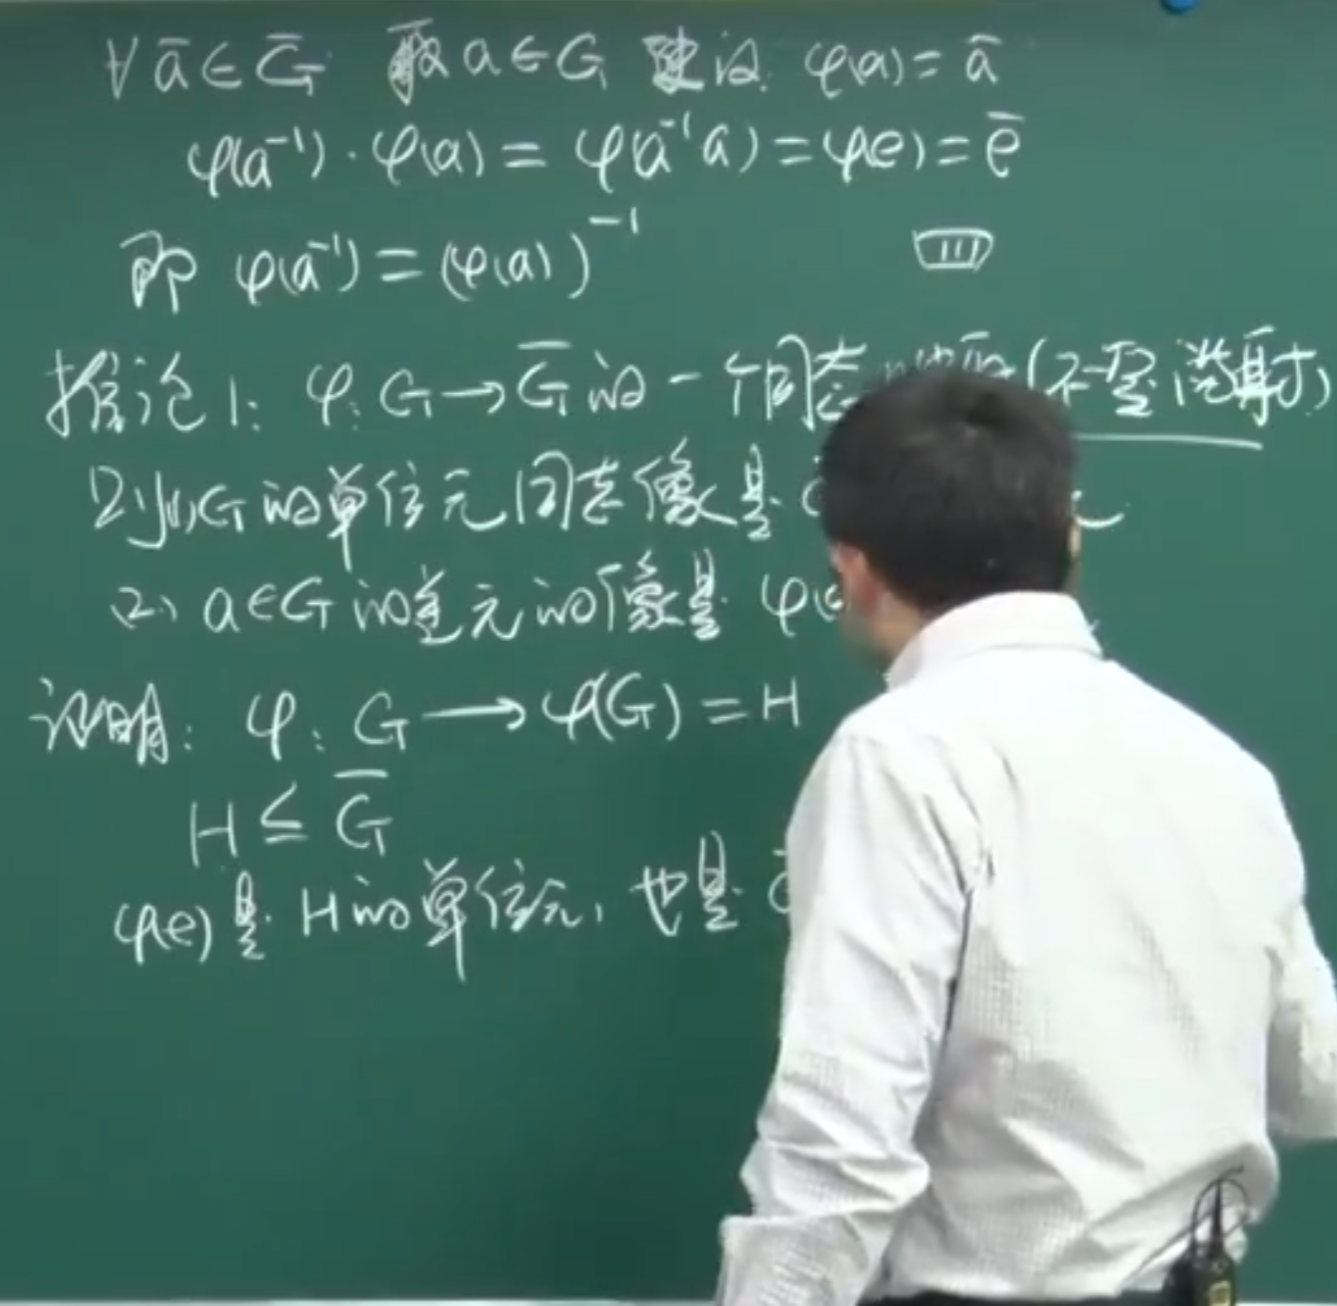 ∀ā∈Ḡ 取a∈G 使得 φ(a)=ā
φ(a⁻¹)·φ(a)=φ(a⁻¹a)=φ(e)=ē
即 φ(a⁻¹)=(φ(a))⁻¹
推论1: φ:G→Ḡ的一个同态 (不一定满射)
则(1)G的单位元同态像是
(2) a∈G的逆元的像是 φ(
证明: φ:G→φ(G)=H
H≤Ḡ
φ(e)是H的单位元,也是